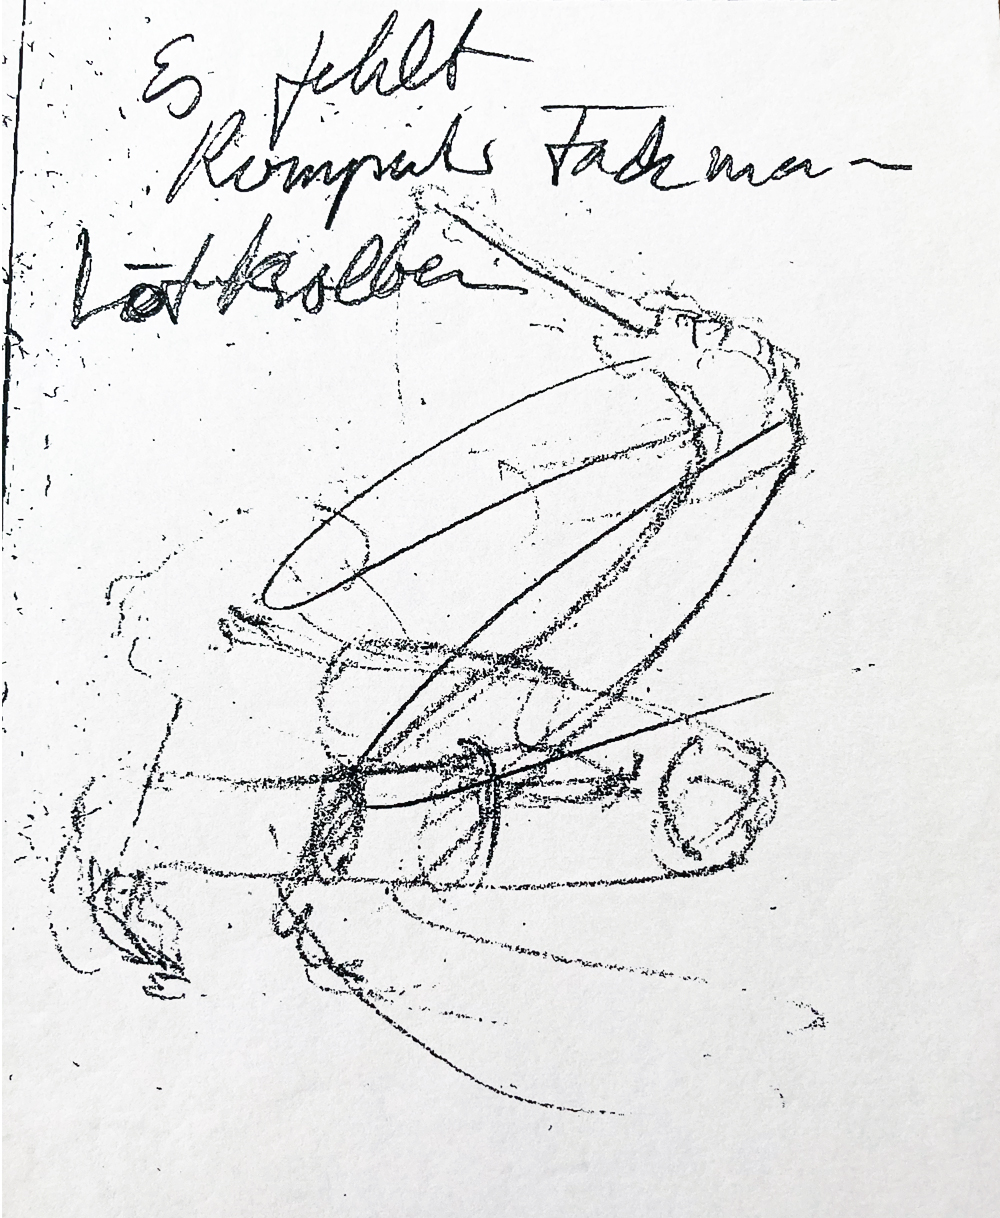 Es fehlt
Komputer Fachma-
Lötkolben